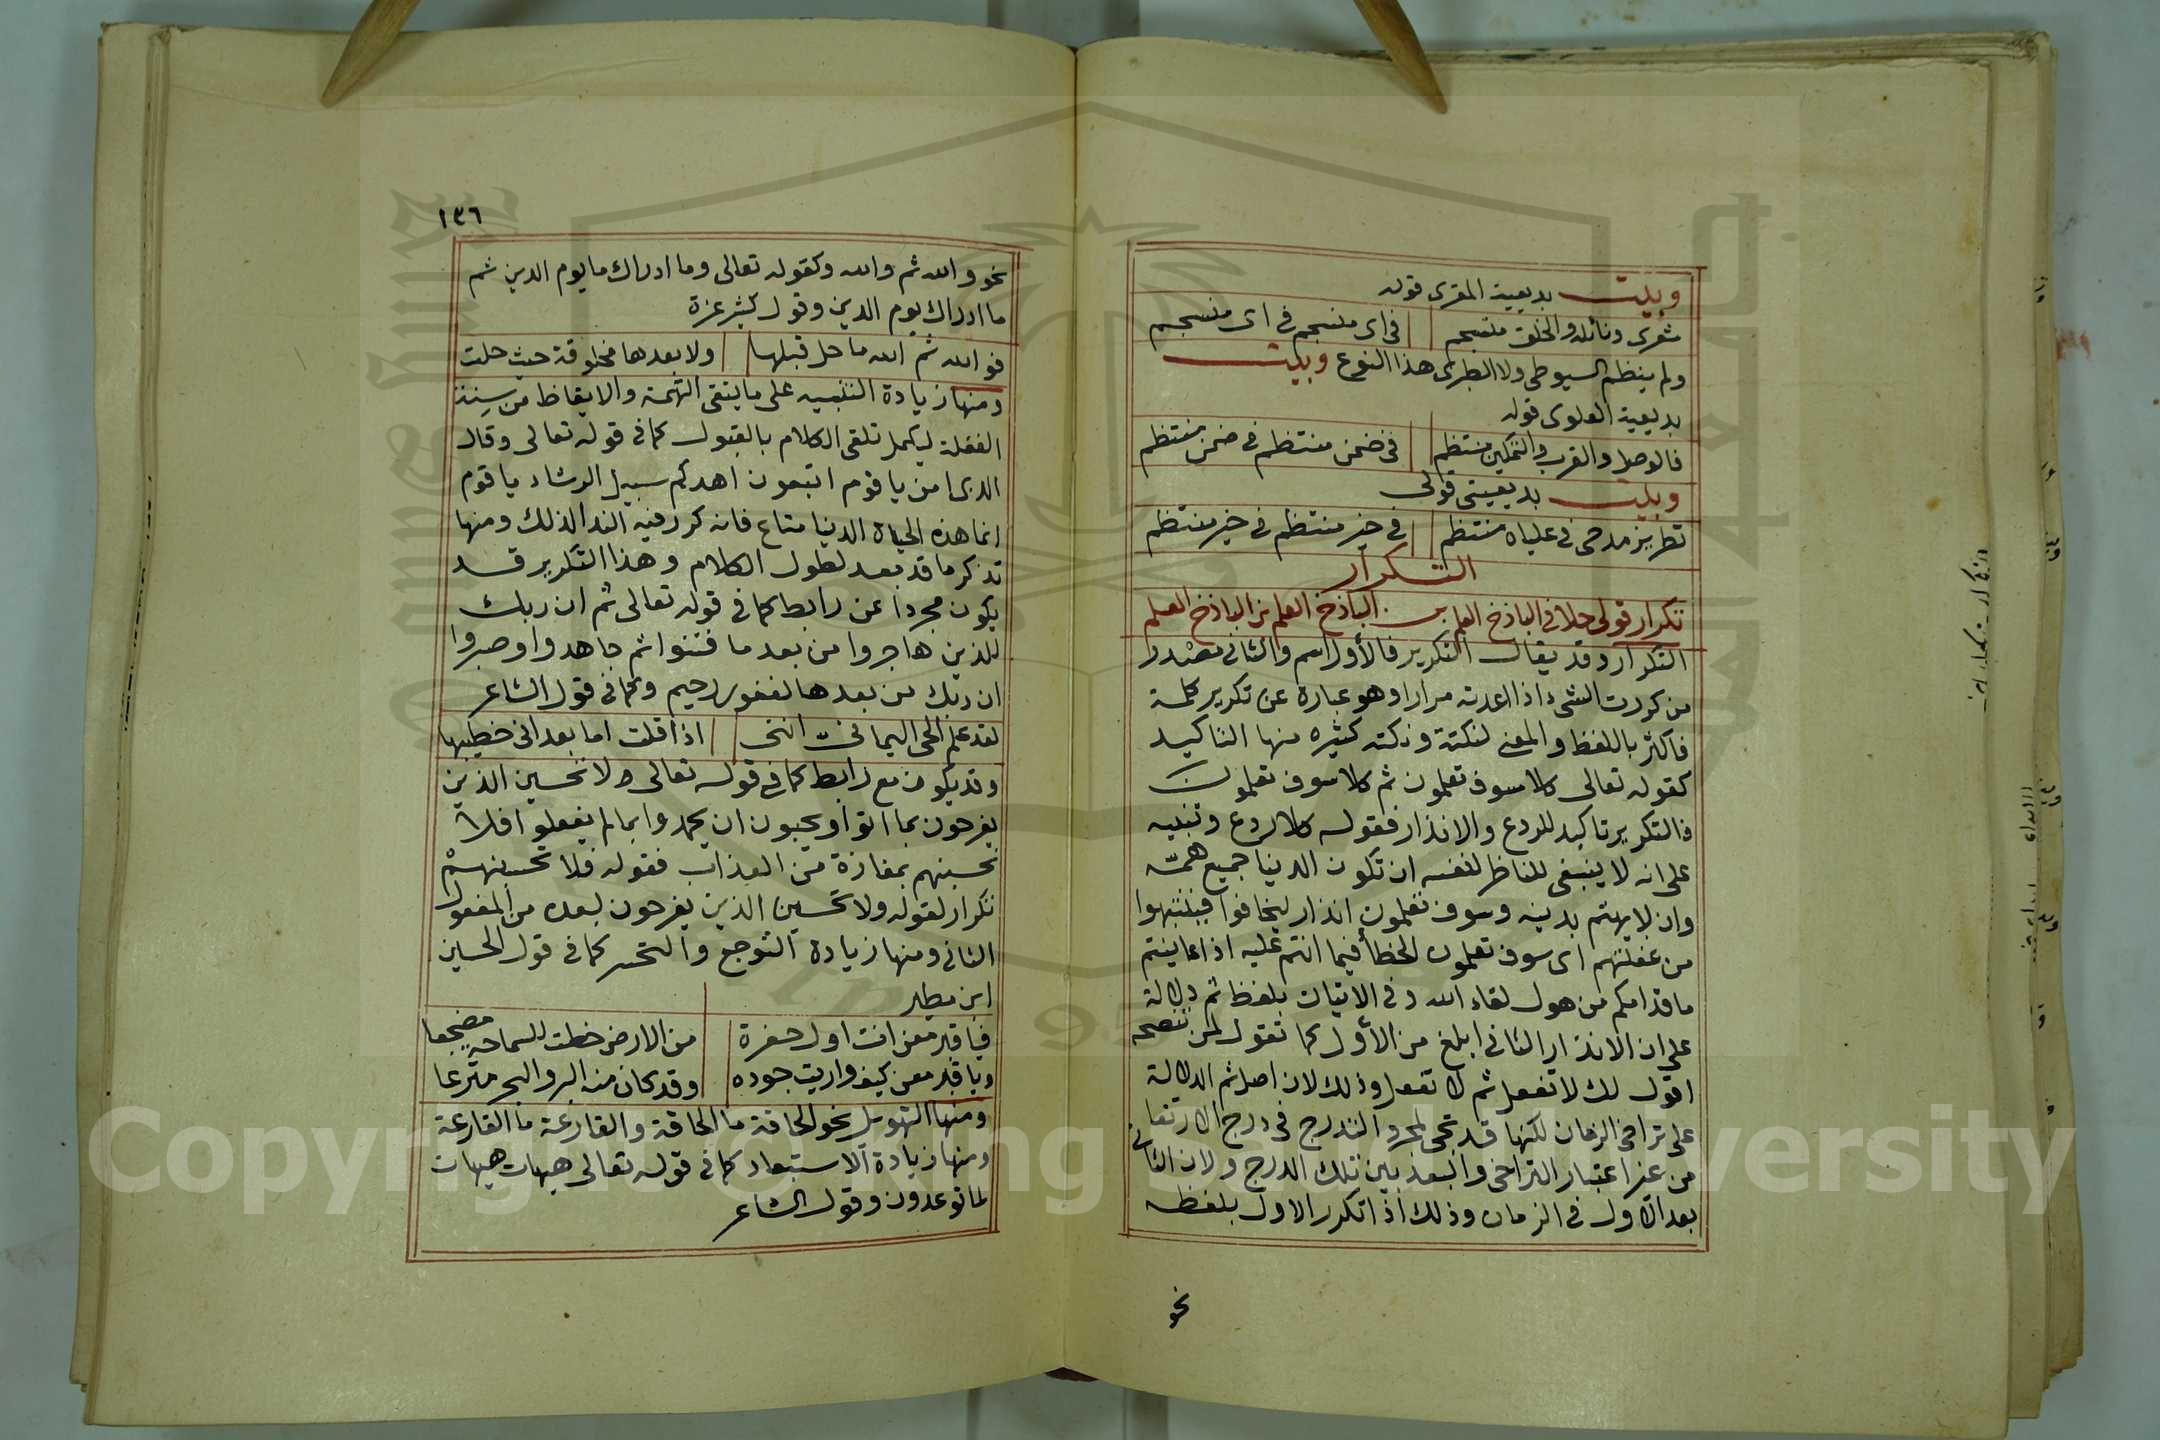 وبيت بديعية المقرى قوله
شعرى ونائله والخلق منسجم فى اى منسجم فى اى منسجم
ولم ينظم السيوطى ولا الطبرى هذا النوع وبيت
بديعية العلوى قوله
فالوصل والقرب والتمكين منتظم فى ضمن منتظم فى ضمن منتظم
وبيت بديعيتى قولى
تطريز مدحى فى علياه منتظم فى خير منتظم فى خير منتظم
التكرار
تكرار قولى حلا فى الباذخ العلم بن الباذخ العلم بن الباذخ العلم
التكرار وقد يقال التكرير فالأول اسم والثانى مصدر
من كررت الشىء اذا اعدته مرارا وهو عبارة عن تكرير كلمة
فاكثر باللفظ والمعنى لنكتة ونكته كثيره منها التاكيد
كقوله تعالى كلا سوف تعلمون ثم كلا سوف تعلمون
فالتكرير تاكيد للردع والانذار فقوله كلا ردع وتنبيه
على انه لا ينبغى للناظر لنفسه ان تكون الدنيا جميع همته
وان لا يهتم بدينه وسوف تعلمون انذار ليخافوا فينتبهوا
من غفلتهم اى سوف تعلمون الخطأ فيما انتم عليه اذا عاينتم
ما قدامكم من هول لقاء الله وفى الاتيان بلفظ ثم دلالة
على ان الانذار الثانى ابلغ من الأول كما تقول لمن تنصحه
اقول لك لا تفعل ثم لا تفعل وذلك لان اصل ثم الدلالة
على تراخى الزمان لكنها قد تجى لمجرد التدرج فى درج الارتقا
من غير اعتبار التراخى والبعد بين تلك الدرج ولان الثانى
بعد الاول فى الزمان وذلك اذا تكرر الاول بلفظه
نحو
١٣٦
نحو والله ثم والله وكقوله تعالى وما ادراك ما يوم الدين ثم
ما ادراك يوم الدين وقول كثير عزة
فو الله ثم الله ما حل قبلها ولا بعدها مخلوقة حيث حلت
ومنها زيادة التنبيه على ما ينفى التهمة والايقاظ من سنة
الغفلة ليكمل تلقى الكلام بالقبول كما فى قوله تعالى وقال
الذى امن يا قوم اتبعون اهدكم سبيل الرشاد يا قوم
انما هذه الحياة الدنيا متاع فانه كرر فيه الندا لذلك ومنها
تذكر ما قد بعد لطول الكلام وهذا التكرير قد
يكون مجردا عن رابط كما فى قوله تعالى ثم ان ربك
للذين هاجروا من بعد ما فتنوا ثم جاهدوا وصبروا
ان ربك من بعدها لغفور رحيم وكما فى قول الشاعر
لقد علم الحى اليمانون اننى اذا قلت اما بعد انى خطيبها
وقد يكون مع رابط كما فى قوله تعالى ولا تحسبن الذين
يفرحون بما اتوا ويحبون ان يحمدوا بما لم يفعلوا فلا
تحسبنهم بمفازة من العذاب فقوله فلا تحسبنهم
تكرار لقوله ولا تحسبن الذين يفرحون لبعده من المفعول
الثانى ومنها زيادة التوجع والتحسر كما فى قول الحسين
ابن مطير
فيا قبر معن انت اول حفرة من الارض خطت للسماحة مضجعا
ويا قبر معن كيف واريت جوده وقد كان منه البر والبحر مترعا
ومنها التهويل نحو الحاقة ما الحاقة والقارعة ما القارعة
ومنها زيادة الاستبعاد كما فى قوله تعالى هيهات هيهات
لما توعدون وقول الشاعر
Copyright © King Saud University